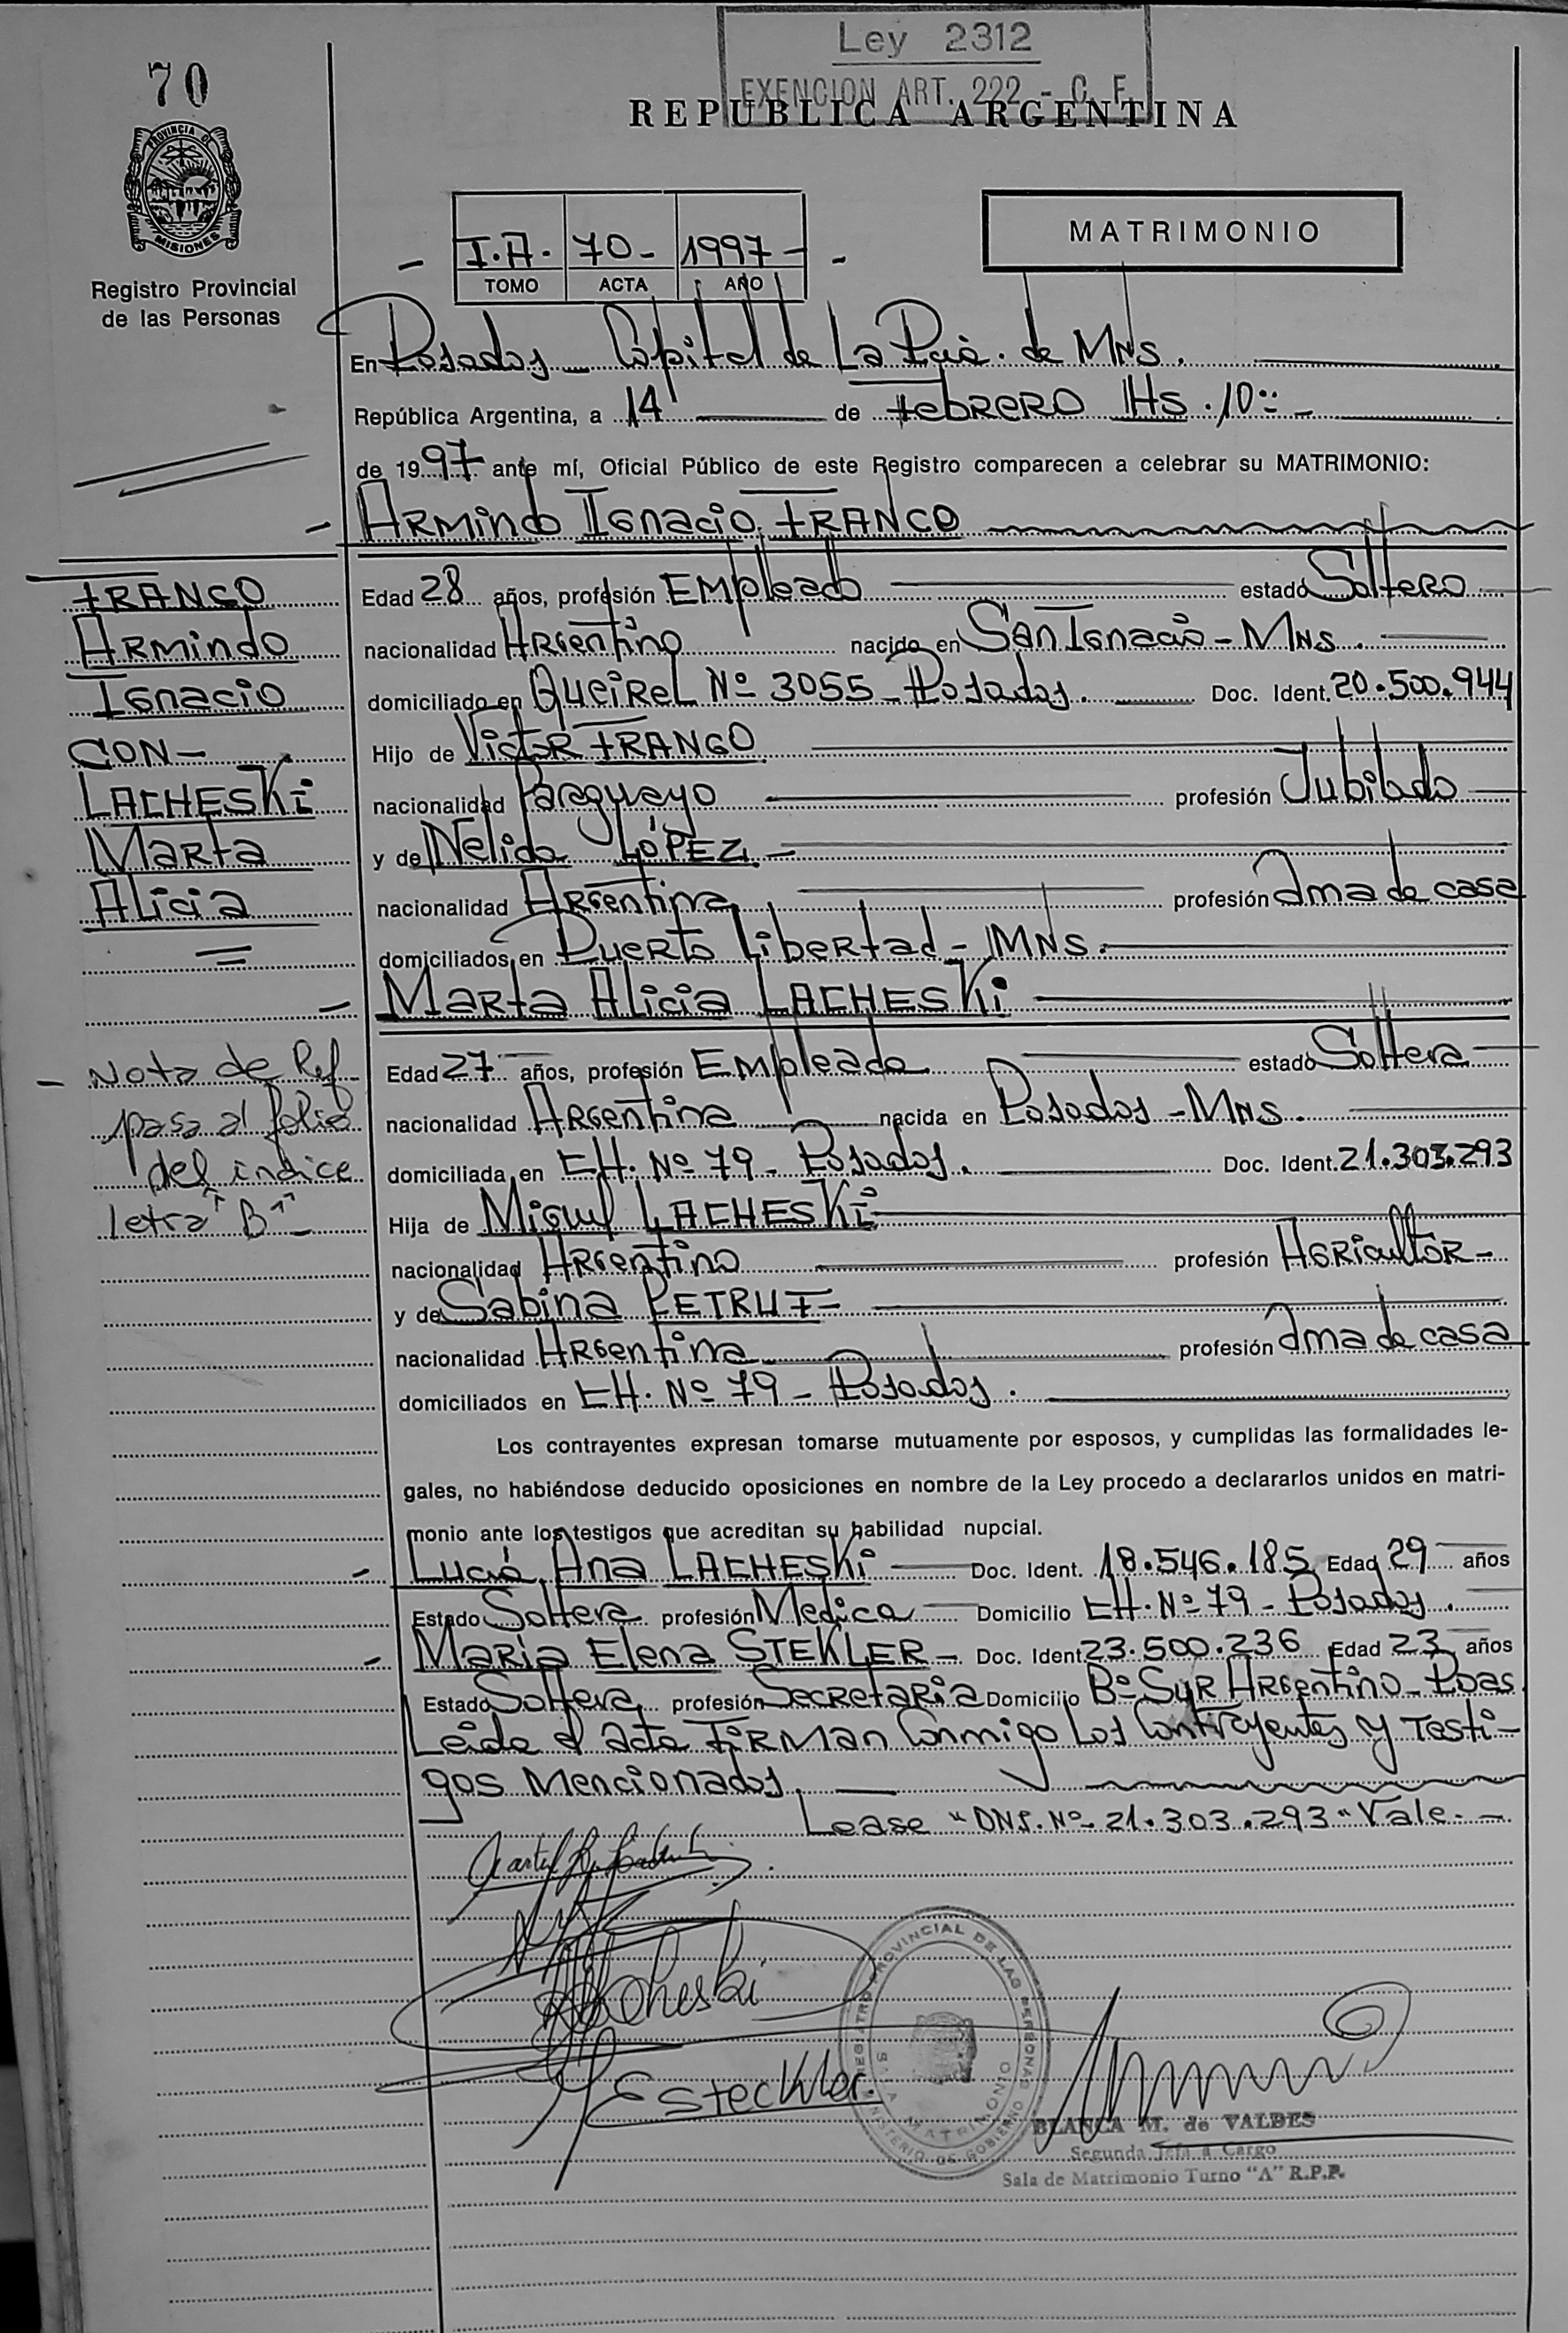 70
Ley 2312
EXENCION ART. 222 - C. F.
REPUBLICA ARGENTINA
PROVINCIA DE
MISIONES
Registro Provincial
de las Personas
I.A. 70- 1997-
TOMO ACTA AÑO
MATRIMONIO
En Posadas - Capital de La Pcia. de MNS.
República Argentina, a 14 de FebRERO Hs. 10:-
de 1997 ante mí, Oficial Público de este Registro comparecen a celebrar su MATRIMONIO:
- ARMindo Ignacio FRANCO
FRANCO
Armindo
Ignacio
CON-
LACHESKi
Marta
Alicia
Edad 28 años, profesión Empleado estado Soltero
nacionalidad Argentino nacido en San Ignacio - Mns.
domiciliado en Queirel Nº 3055 - Posadas. Doc. Ident. 20.500.944
Hijo de Victor FRANCO
nacionalidad Paraguayo profesión Jubilado
y de Nelida LÓPEZ.-
nacionalidad Argentina profesión Ama de casa
domiciliados en Puerto Libertad - MNS.
- Marta Alicia LACHESKi
- Nota de Ref
pasa al folio
del indice
letra "B"-
Edad 27 años, profesión Empleada estado Soltera
nacionalidad Argentina nacida en Posadas - MNS.
domiciliada en CH. Nº 79 - Posadas. Doc. Ident. 21.303.293
Hija de Miguel LACHESKi
nacionalidad Argentino profesión Agricultor -
y de Sabina PETRUF
nacionalidad Argentina profesión Ama de casa
domiciliados en CH. Nº 79 - Posadas.
Los contrayentes expresan tomarse mutuamente por esposos, y cumplidas las formalidades le-
gales, no habiéndose deducido oposiciones en nombre de la Ley procedo a declararlos unidos en matri-
monio ante los testigos que acreditan su habilidad nupcial.
- Lucía Ana LACHESKi Doc. Ident. 18.546.185 Edad 29 años
Estado Soltera profesión Medica Domicilio CH. Nº 79 - Posadas.
- Maria Elena STEKLER - Doc. Ident 23.500.236 Edad 23 años
Estado Soltera profesión Secretaria Domicilio Bº Sur Argentino - Pdas.
Leida el acta FiRMAN Conmigo Los Contrayentes y Testi-
gos Mencionados.
Lease "DNI. Nº 21.303.293" Vale.-
Lacheski
EsteckLer.
REGISTRO PROVINCIAL DE LAS PERSONAS
SALA MATRIMONIO
MINISTERIO DE GOBIERNO
BLANCA M. de VALDES
Segunda Jefa a Cargo
Sala de Matrimonio Turno "A" R.P.P.